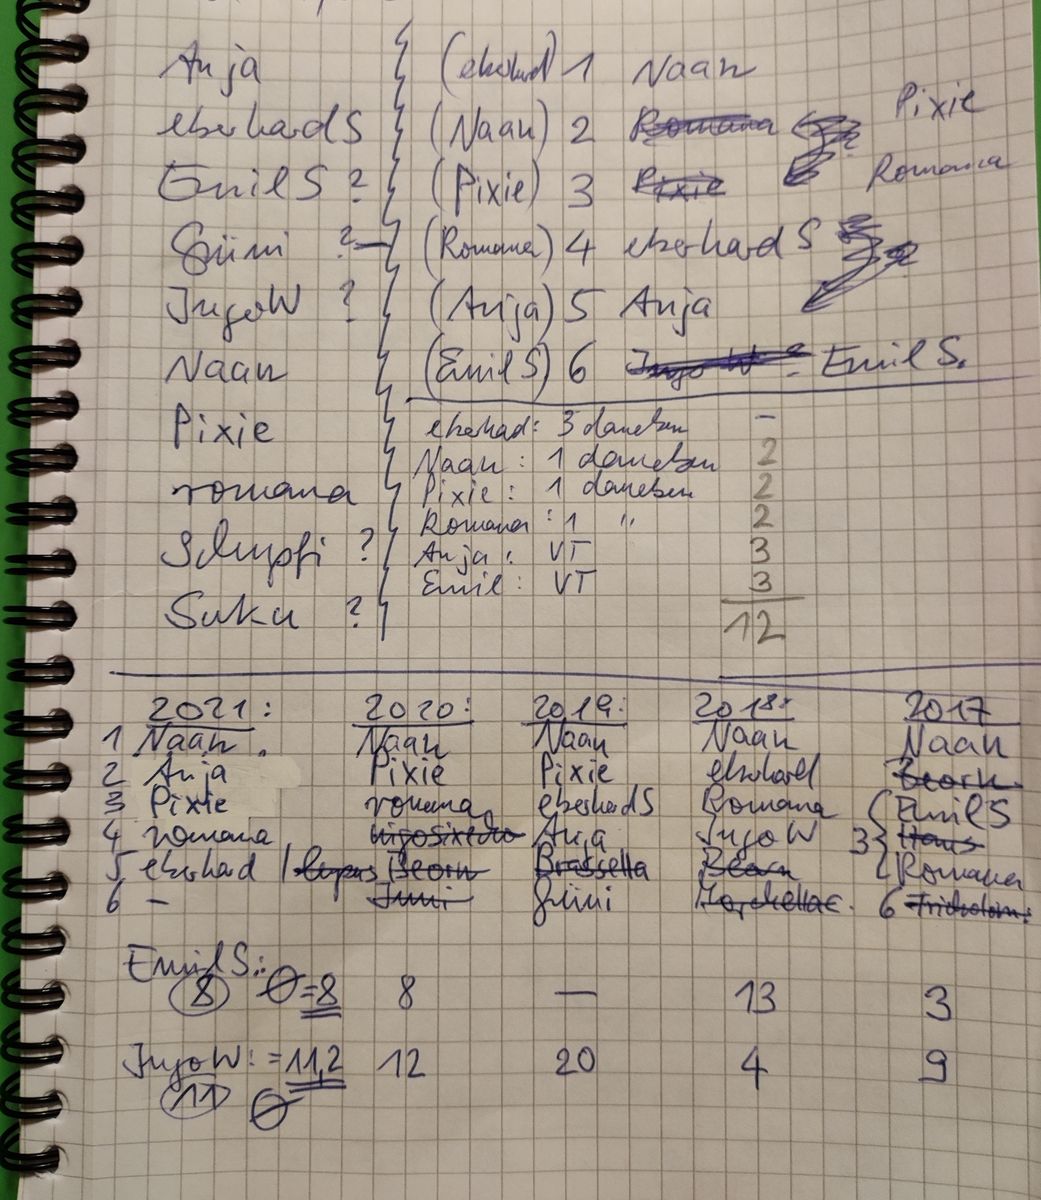 Anja (eberhard) 1 Naan
eberhardS (Naan) 2 Romana Pixie
EmilS ? (Pixie) 3 Pixie Romana
Giini ? (Romana) 4 eberhardS
IngoW ? (Anja) 5 Anja
Naan (EmilS) 6 Ingo W ? Emil S.
Pixie eberhad: 3 daneben –
Naan: 1 daneben 2
romana Pixie: 1 daneben 2
Romana: 1 " 2
Schupfi ? Anja: VT 3
Emil: VT 3
Suku ? 12
2021: 2020: 2019: 2018: 2017
1 Naan. Naan Naan Naan Naan
2 Anja Pixie Pixie eberhard Beorn
3 Pixie romana eberhardS Romana EmilS
4 romana Anja IngoW 3 Hans
5 eberhard / lupus Beorn Brassella Beorn Romana
6 – Giini 6
EmilS:
8 Ø=8 8 — 13 3
IngoW: =11,2 12 20 4 9
11 Ø